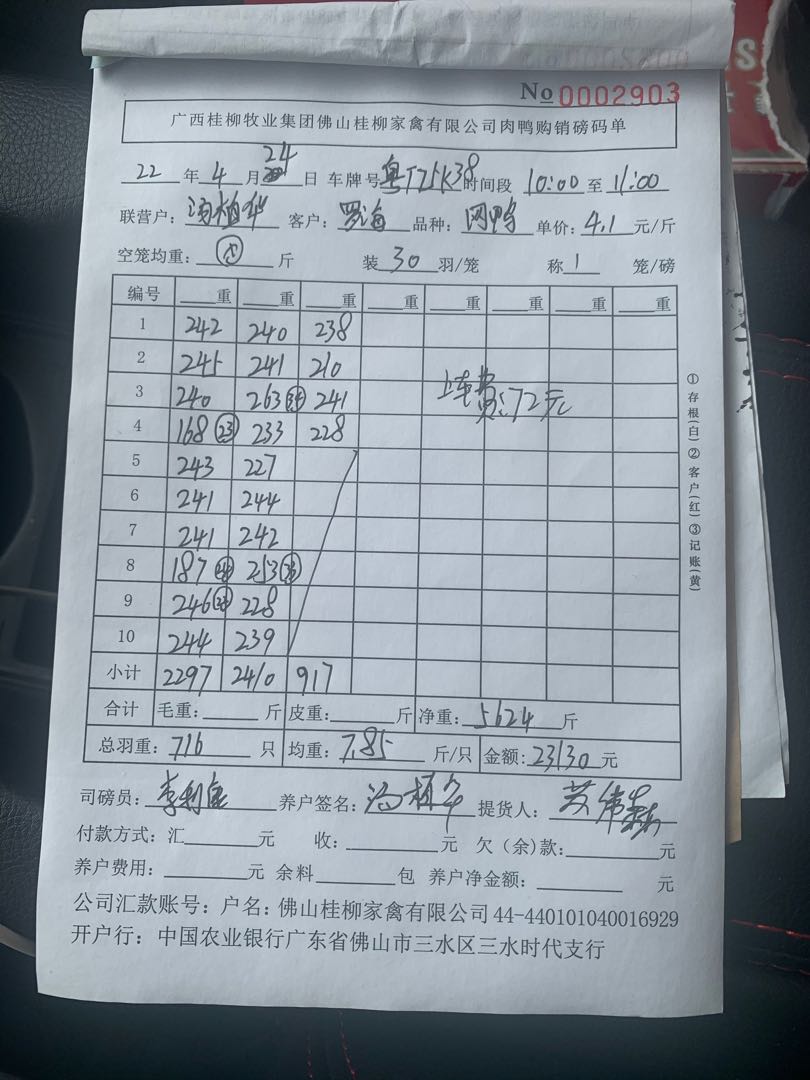 No 0002903
广西桂柳牧业集团佛山桂柳家禽有限公司肉鸭购销磅码单
22 年 4 月 24 日 车牌号 粤T75K38 时间段 10:00 至 11:00
联营户: 冯植华 客户: 罗海 品种: 网鸭 单价: 4.1 元/斤
空笼均重: 斤 装 30 羽/笼 称 1 笼/磅
编号 重 重 重 重 重 重 重 重
1 242 240 238
2 245 241 210
3 240 263 34 241 上车费:72元
4 168 23 233 228
5 243 227
6 241 244
7 241 242
8 187 24 253
9 246 228
10 244 239
小计 2297 2410 917
合计 毛重: 斤 皮重: 斤 净重: 5624 斤
总羽重: 716 只 均重: 7.85 斤/只 金额: 23130 元
司磅员: 养户签名: 冯植华 提货人: 苏伟森
付款方式: 汇 元 收: 元 欠(余)款: 元
养户费用: 元 余料 包 养户净金额: 元
公司汇款账号: 户名: 佛山桂柳家禽有限公司 44-440101040016929
开户行: 中国农业银行广东省佛山市三水区三水时代支行
①存根(白)②客户(红)③记账(黄)